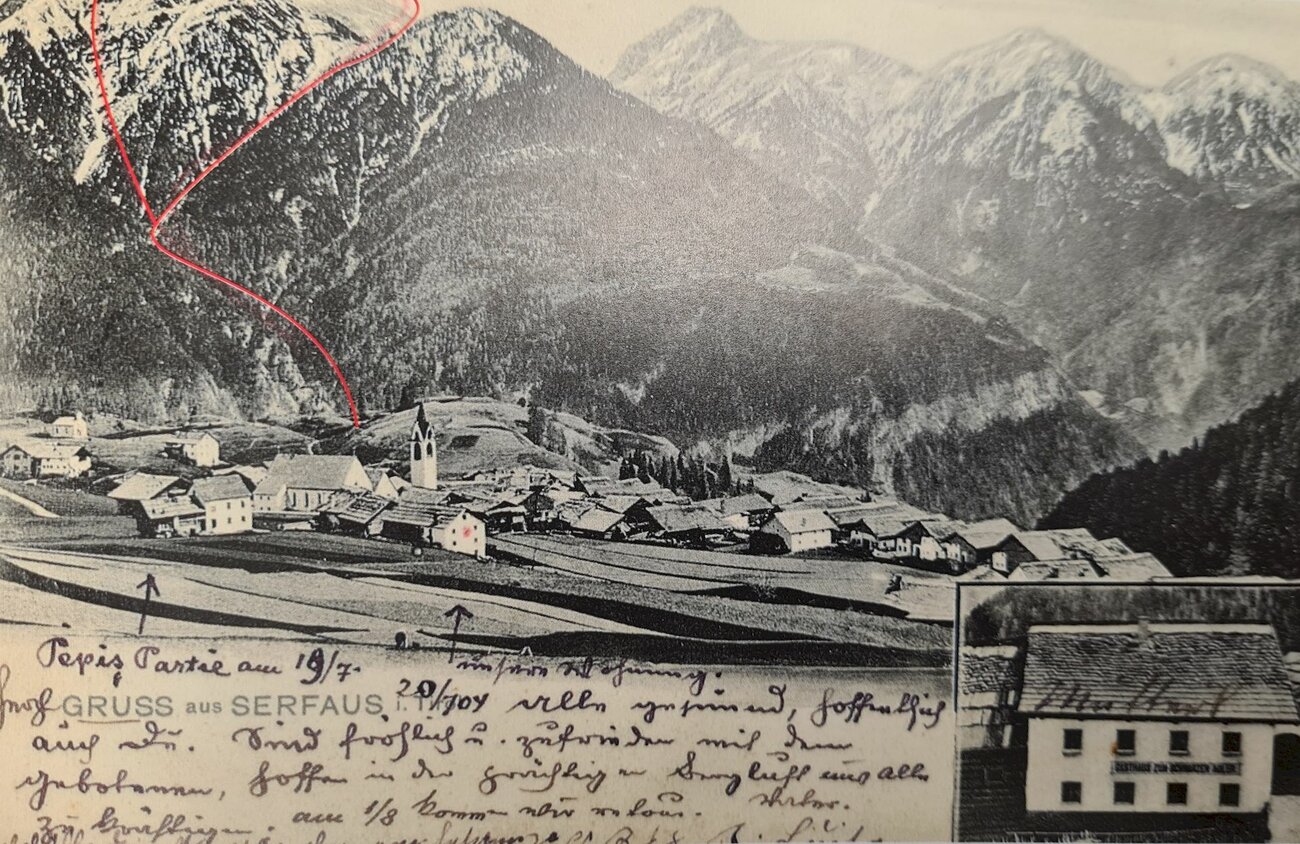 Pepis Partie am 19/7.
unsere Wohnung.
GRUSS aus SERFAUS i. T.
20/7 04 Alle gesund, hoffentlich
auch Du. Sind fröhlich u. zufrieden mit dem
gebotenen, hoffen in der prächtigen Bergluft uns alle
zu kräftigen. am 1/8 kommen wir retour. Vater.
GASTHAUS ZUM SCHWARZEN ADLER